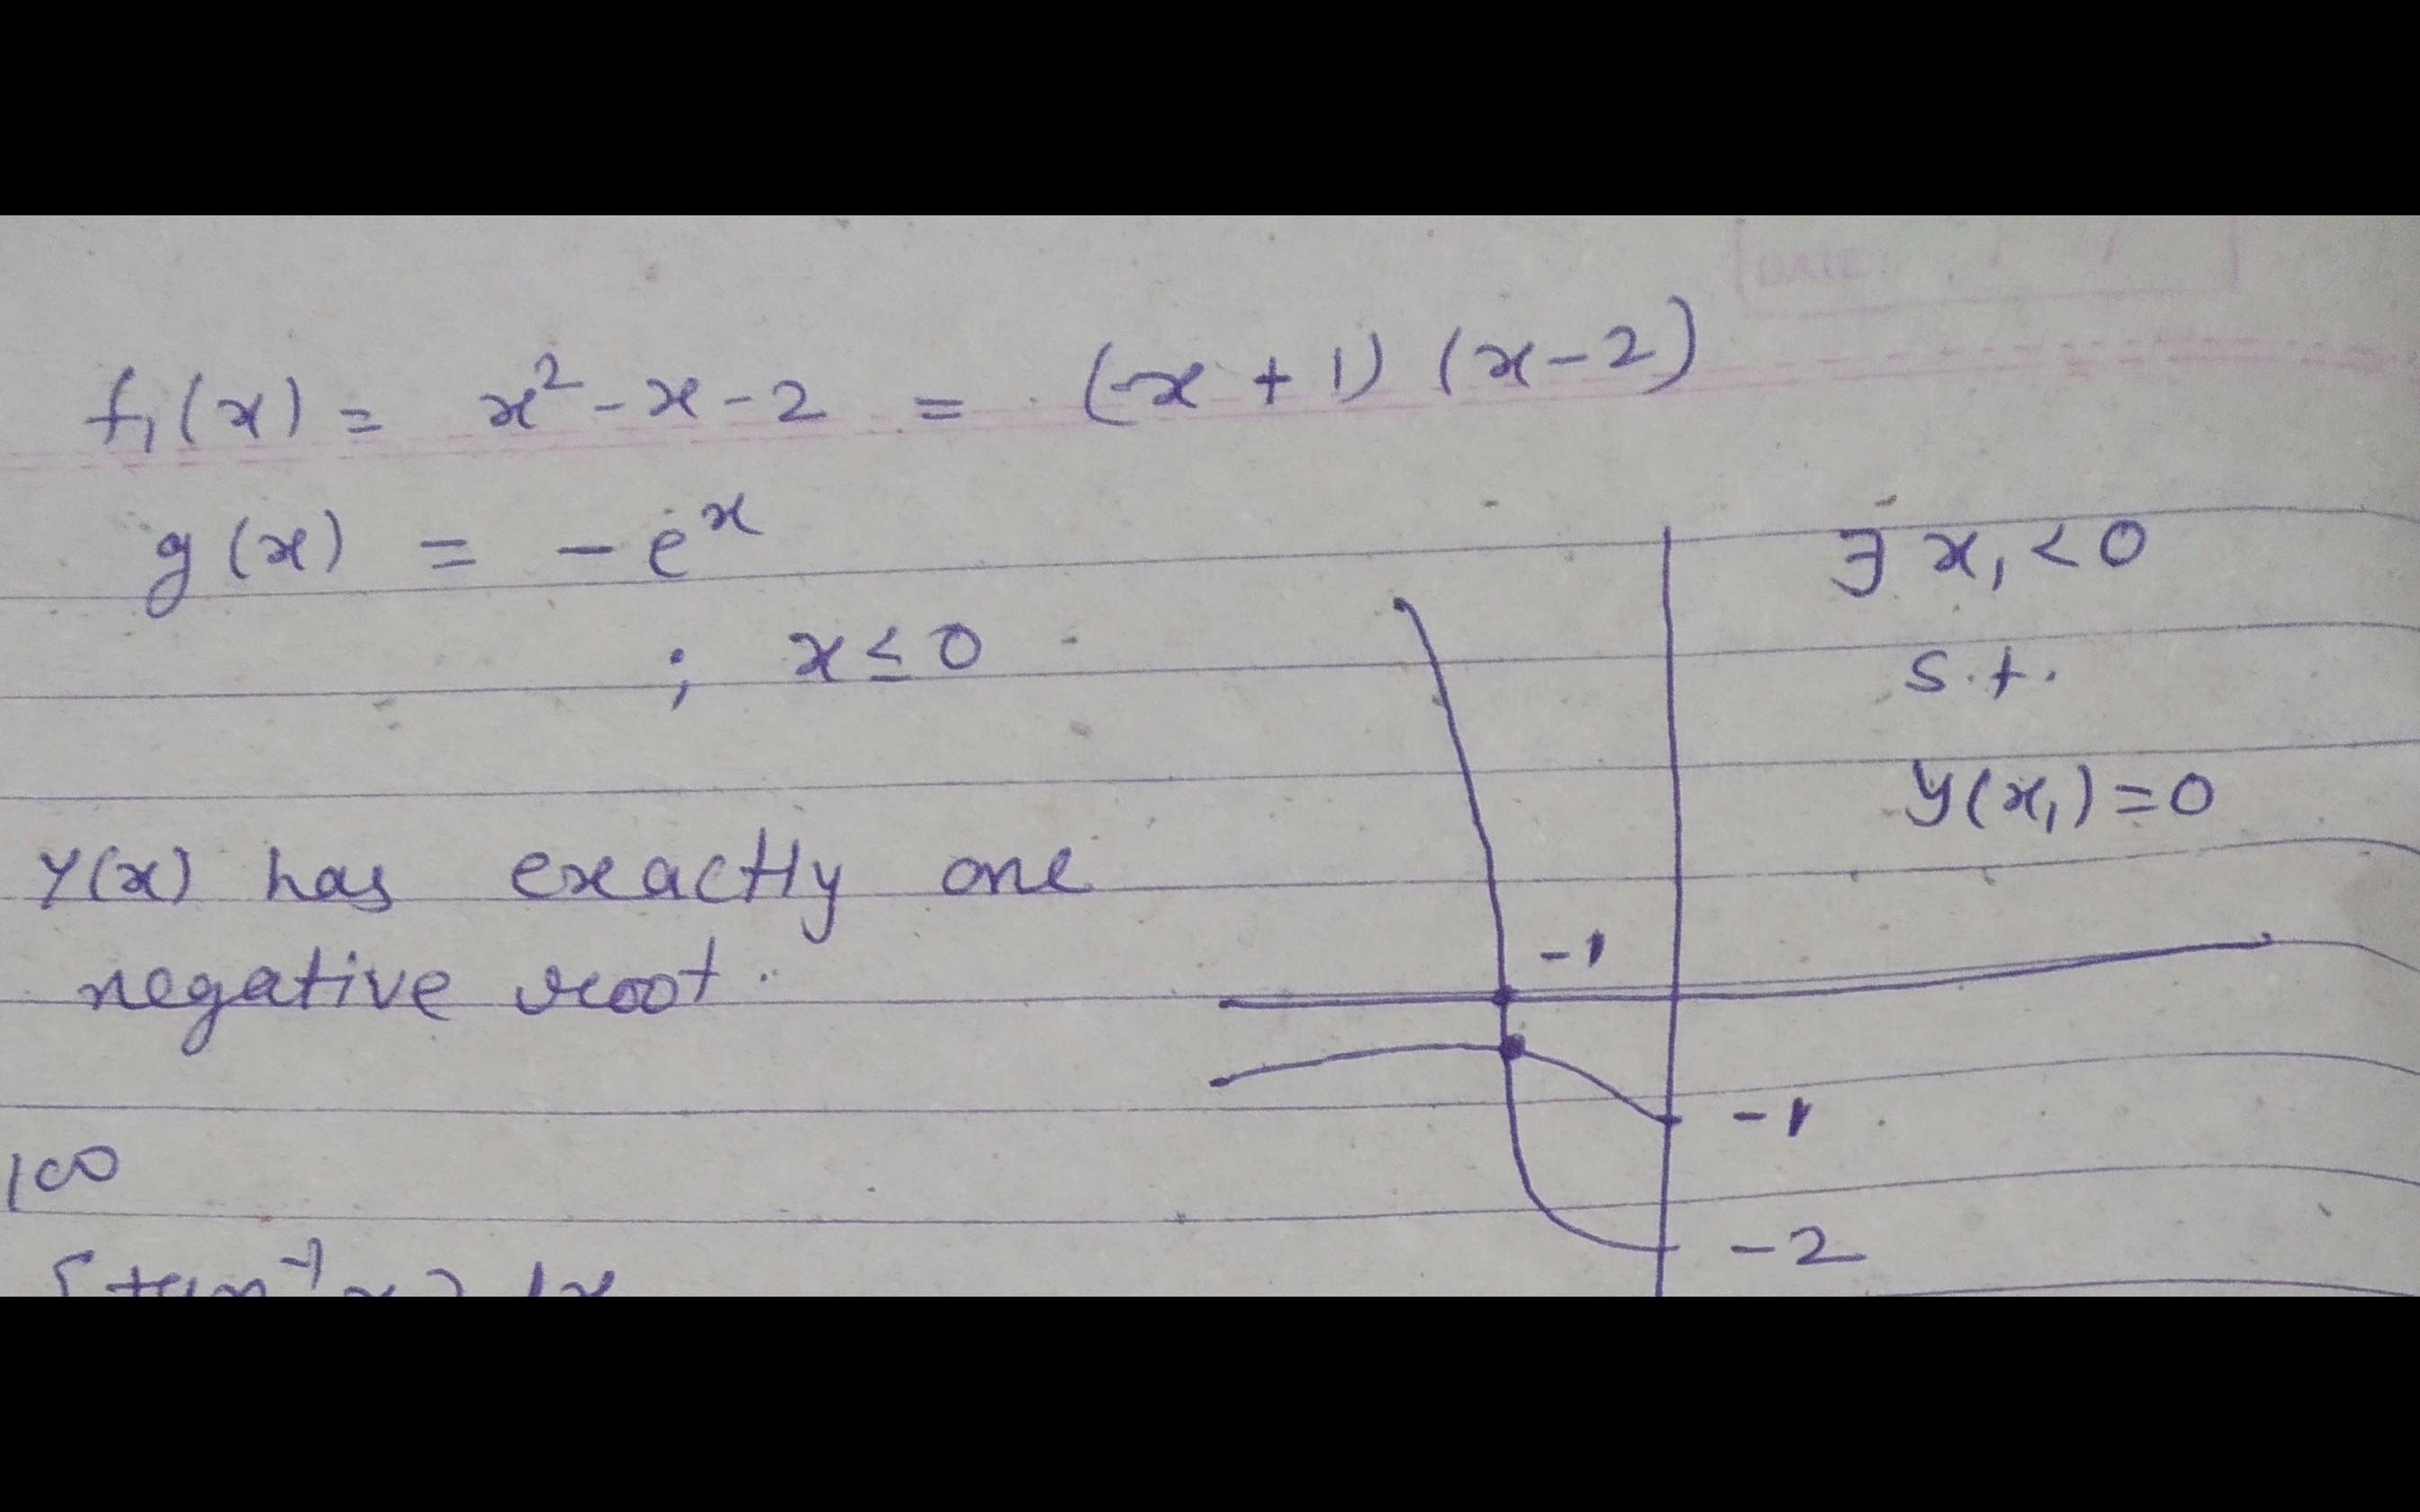 f₁(x) = x² - x - 2 = (x + 1) (x - 2)
g(x) = - eˣ
; x ≤ 0
∃ x₁ < 0
s.t.
y(x₁) = 0
Y(x) has exactly one
negative root.
-1
-1
-2
100
tan⁻¹x
DATE